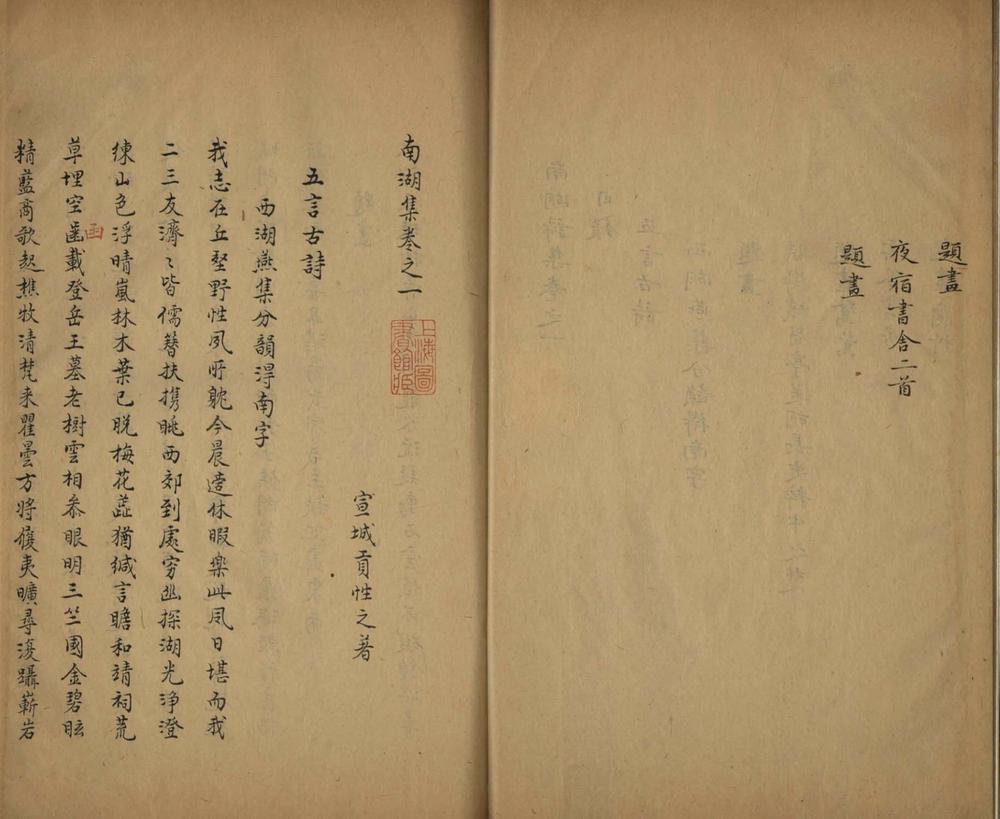 題畫
夜宿書舍二首
題畫
南湖集卷之一
上海圖書館藏
宣城貢性之著
五言古詩
西湖燕集分韻得南字
我志在丘壑野性夙所躭今晨遂休暇樂此風日堪而我
二三友濟〻皆儒簪扶携眺西郊到處窮幽探湖光浄澄
練山色浮晴嵐林木葉已脱梅花蕋猶緘言瞻和靖祠荒
草埋空䓕載登岳王墓老樹雲相叅眼明三竺國金碧眩
函
精藍商歌起樵牧清梵来瞿曇方将復夷曠尋復躡嶄岩